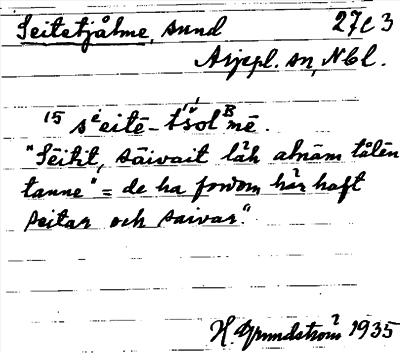 Seitetjålme, sund 27C3
Arjepl. sn, Nbl.
15 sèitē-tšolᴮmē.
"Sēitit, sāivait läh atnam tålen
tanne" = de ha fordom här haft
seitar och saivar."
H. Grundström 1935